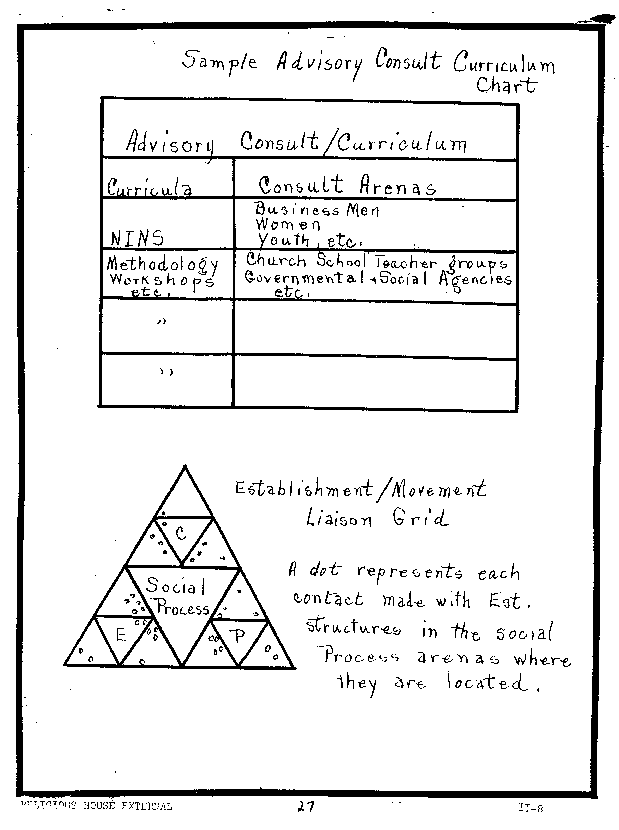 Sample Advisory Consult Curriculum
Chart
Advisory Consult/Curriculum
Curricula Consult Arenas
NINS
Business Men
Women
Youth, etc.
Methodology
Workshops
etc.
Church School Teacher groups
Governmental + Social Agencies
etc.
"
"
Establishment/Movement
Liaison Grid
C
Social
Process
E
P
A dot represents each
contact made with Est.
structures in the social
Process arenas where
they are located.
RELIGIOUS HOUSE EXTERNAL 27 II-8